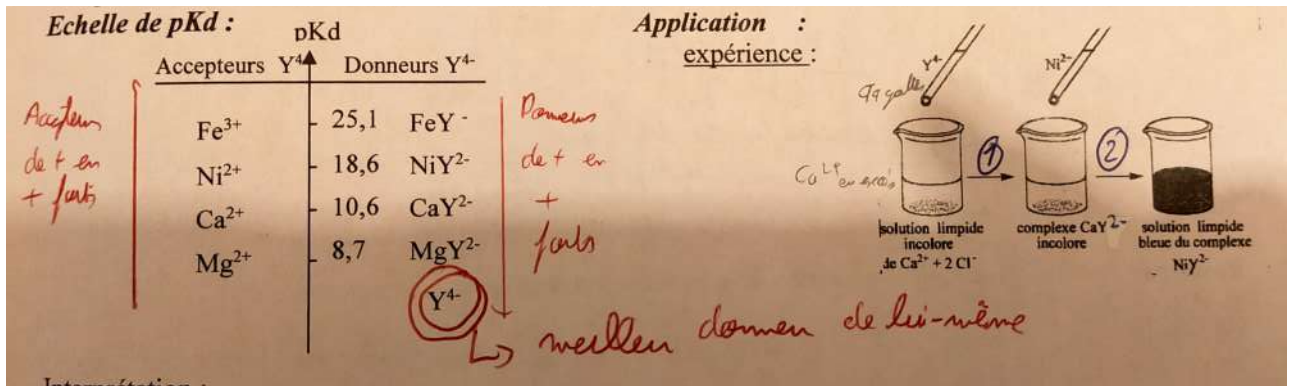 Echelle de pKd :
pKd
Accepteurs Y⁴
Donneurs Y⁴⁻
Accepteurs
de + en
+ forts
Fe³⁺ 25,1 FeY⁻
Ni²⁺ 18,6 NiY²⁻
Ca²⁺ 10,6 CaY²⁻
Mg²⁺ 8,7 MgY²⁻
Y⁴⁻
Donneurs
de + en
+
forts
meilleur donneur de lui-même
Application :
expérience :
Y⁴⁻
Ni²⁻
gouttes
Ca²⁺ en excès
1
2
solution limpide
incolore
de Ca²⁺ + 2 Cl⁻
complexe CaY²⁻
incolore
solution limpide
bleue du complexe
NiY²⁻
Interprétation :